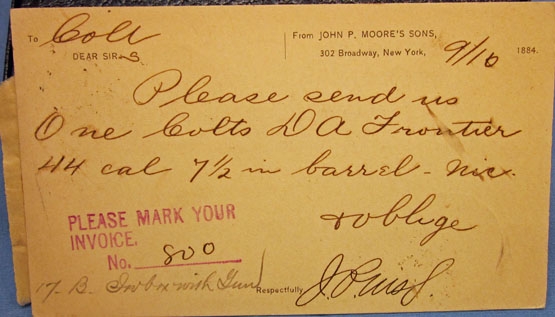 To Colt
DEAR SIRS
From JOHN P. MOORE'S SONS,
302 Broadway, New York, 9/10 1884.
Please send us
One Colts DA Frontier
44 cal 7½ in barrel - Nic.
& oblige
PLEASE MARK YOUR
INVOICE.
No. 800
17. B. In box with Gun
Respectfully